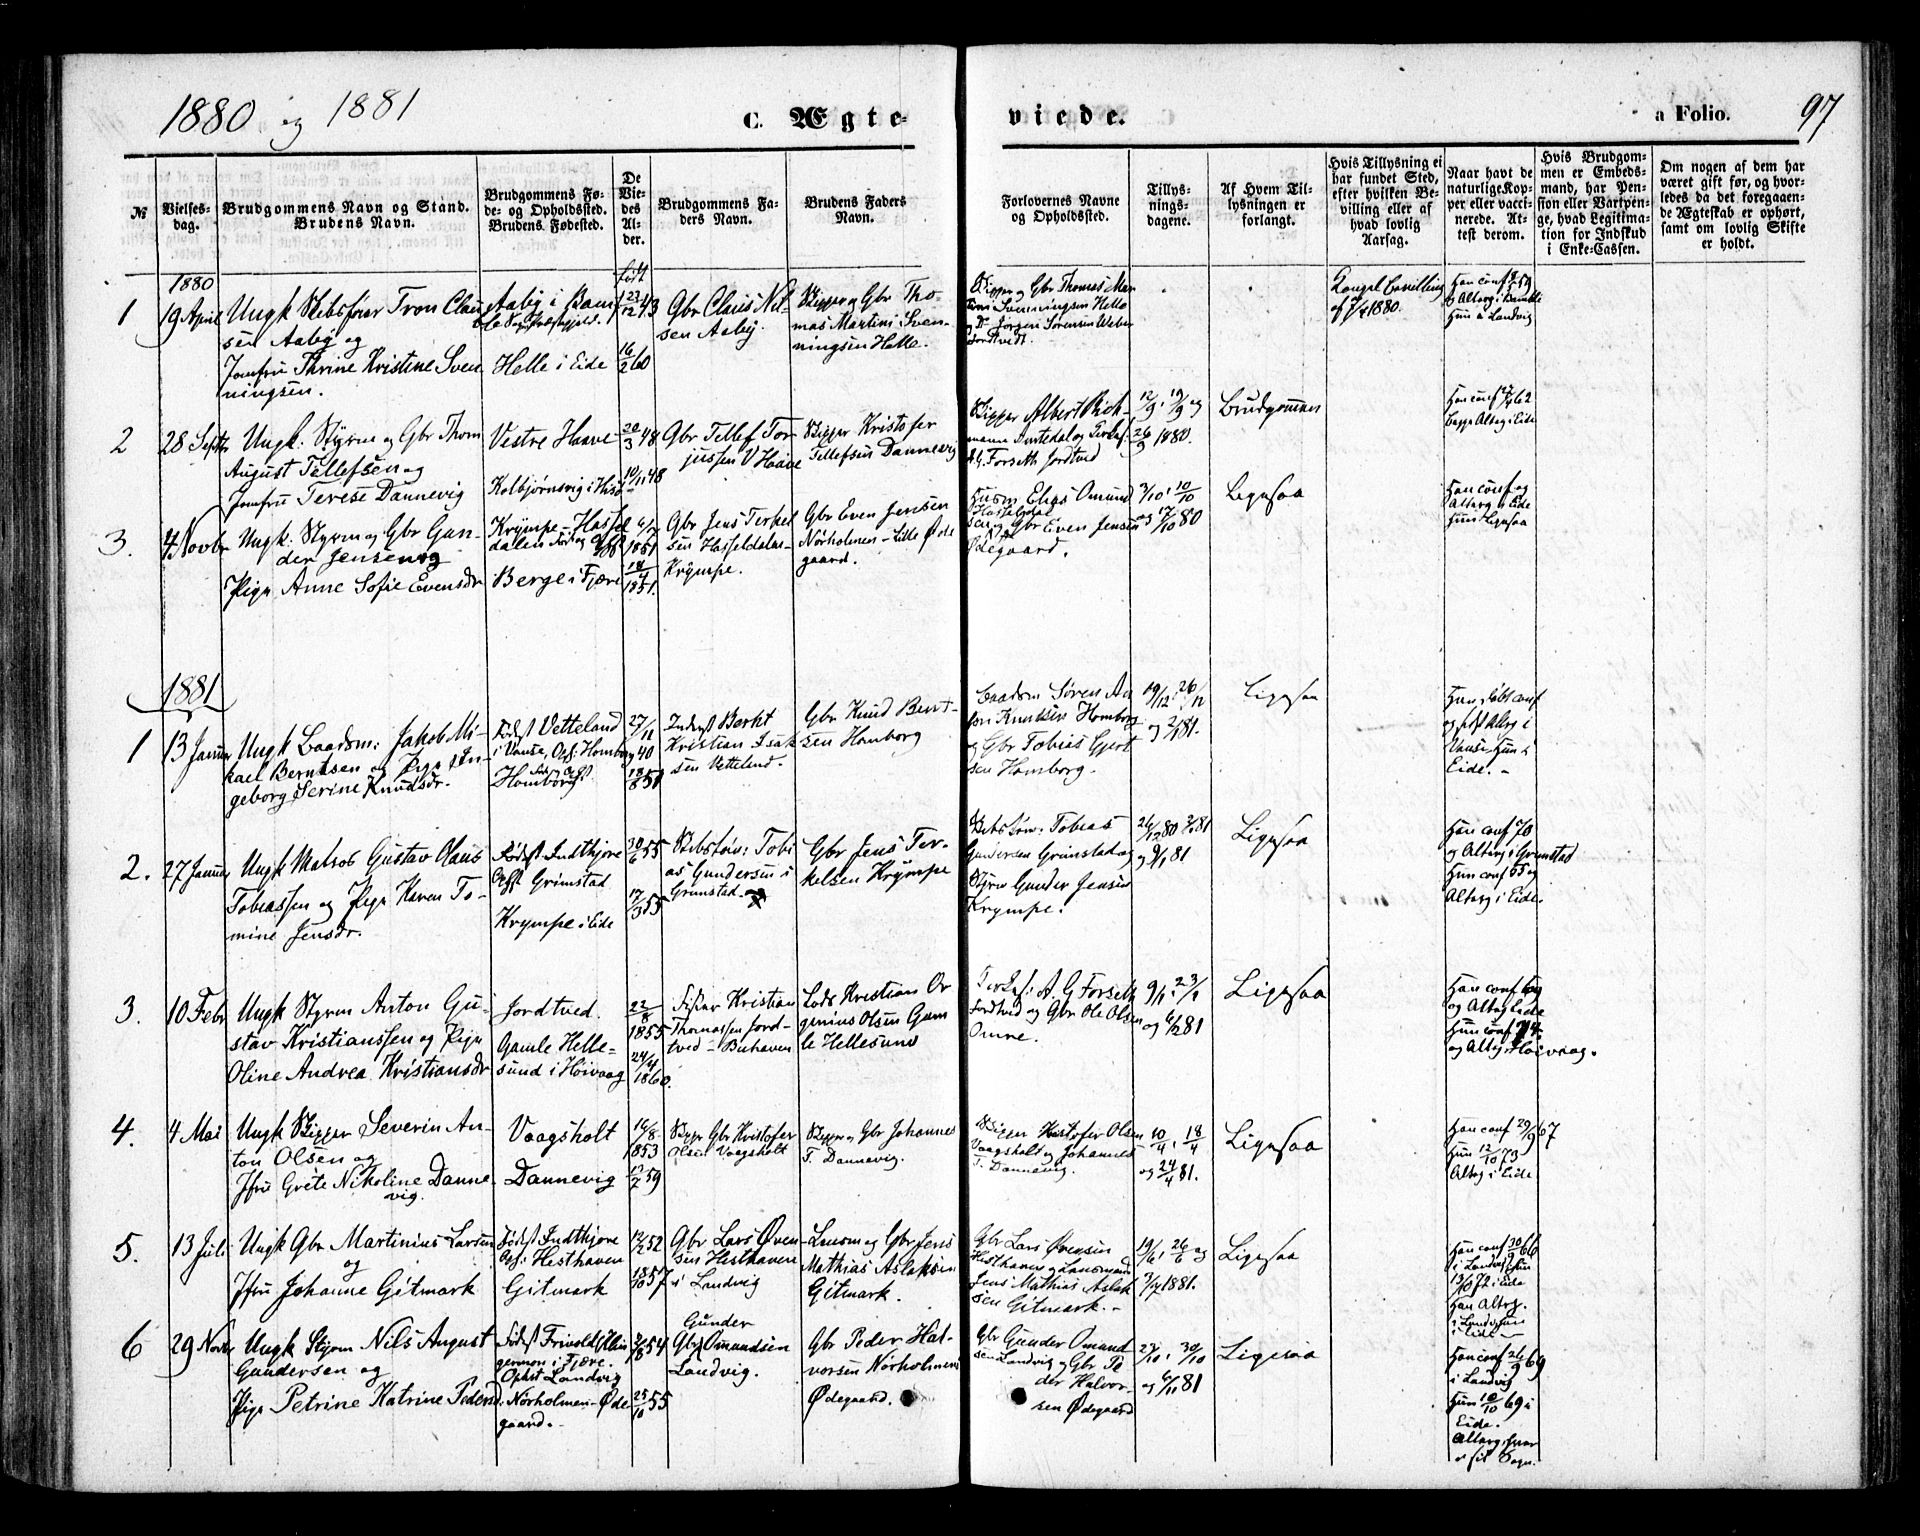 1880 og 1881
C. Ægte-
viede.
a Folio. 97
№
Vielses-
dag.
Brudgommens Navn og Stand.
Brudens Navn.
Brudgommens Fø-
de- og Opholdssted.
Brudens Fødested.
De
Vie-
des
Al-
der.
Brudgommens Fa-
ders Navn.
Brudens Faders
Navn.
Forlovernes Navne
og Opholdssted.
Tillys-
nings-
dagene.
Af Hvem Til-
lysningen er
forlangt.
Hvis Tillysning ei
har fundet Sted,
efter hvilken Be-
villing eller af
hvad lovlig
Aarsag.
Naar havt de
naturlige Kop-
per eller vacci-
nerede. At-
test derom.
Hvis Brudgom-
men er Embeds-
mand, har Pen-
sion eller Vartpen-
ge, hvad Legitima-
tion for Indskud
i Enke-Cassen.
Om nogen af dem har
været gift før, og hvor-
ledes da det foregaaen-
de Ægteskab er ophørt,
samt om lovlig Skifte
er holdt.
1880
født
1
19 April
Ungk Skibsfører Tron Claus
sen Aaby og
Jomfru Thrine Kristine Sven
ningsen.
Aaby i Bam
Helle i Eide
23/12 43
16/2 60
Gbr Claus Niel-
sen Aaby.
Skipper og Gbr Tho-
mas Martini Sven-
ningsen Helle.
Skipper og Gbr Thomas Mar
tini Svenningsen Helle
og Jørgen Sørensen Weber
Jordtvedt.
Kongel Bevilling
af 7/4 1880.
Alterg. i Bamble
Hun i Landvig
2
28 Septb
Ungk. Styrm og Gbr Thom
August Tellefsen og
Jomfru Terese Dannevig
Vestre Haave
Kolbjørnsvig i Hisø
20/3 48
10/11 48
Gbr Tellef Tor-
jussen V Haave
Skipper Kristofer
Tellefsen Dannevig
Skipper Albert Rich-
A. G. Forseth Jordtved
12/9, 19/9 og
26/9 1880.
Brudgommen
Han conf 27/4 62
Begge Alterg i Eide
3.
4 Novbr
Ungk: Styrm og Gbr Gun-
der Jensen og
Pige Anne Sofie Evensdr
Krympe - Hassel
dalen Fød og Opf
Berge i Fjære
6/2
1851
18/4
1851.
Gbr Jens Terkel
sen Hasseldalen-
Krympe.
Gbr Even Jensen
Nørholmen - Lille Øde
gaard.
Husm Elias Omund
sen Hasseldal
og Gbr Even Jensen
Ødegaard.
3/10, 10/10
og 17/10 80
Ligesaa
Han conf og
Alterg i Eide
Hun Ligesaa
1881
1
13 Januar
Ungk Baadsm: Jakob Mi-
kael Berntsen og Pige In-
geborg Serine Knudsdr.
Født Vetteland
i Vanse, Opf: Homborg
Homborg
27/11
40
18/8 51
Inderst Bernt
Kristian Isak
sen Vetteland.
Gbr Knud Bernt-
sen Homborg
Baadsm Søren An
ton Knudsen Homborg
og Gbr Tobias Gjert
sen Homborg.
19/12, 26/12
og 2/1 81.
Ligesaa
Han født conf
og sidst Alterg i
Vanse, Hun i
Eide.
2.
27 Januar
Ungk Matros Gustav Olaus
Tobiassen og Pige Karen To-
mine Jensdr.
Født Indthjore
Opf Grimstad
Krympe i Eide
30/6 55
17/3 55
Skibstøm: Tobi
as Gundersen i
Grimstad
Gbr Jens Ter-
kelsen Krympe
Skibstøm: Tobias
Gundersen Grimstad og
Styrm Gunder Jensen
Krympe.
26/12 80 2/1 81
og 9/1 81
Ligesaa
Han conf 70
og Alterg i Grimstad
Hun conf og
Alterg i Eide.
3.
10 Febr
Ungk Styrm Anton Gu-
stav Kristianssen og Pige
Oline Andrea Kristiansdr
Jordtved.
Gamle Helle-
sund i Høivaag
22/8
1855
24/4
1860.
Fisker Kristian
Thomassen Jord-
tved - Buhaven
Lods Kristian Or
genius Olsen Gam
le Hellesund
A G Forseth
Jordtved og Gbr Ole Olsen
Omre.
9/1, 23/1
og 6/2 81
Ligesaa
Han conf
og Alterg Eide
Hun conf
og Alterg Høivaag.
4.
4 Mai
Ungk Skipper Severin An-
ton Olsen og
Jfru Grete Nikoline Danne-
vig.
Vaagsholt
Dannevig
16/8
1853
Skippr Gbr Kristofer
Olsen Vaagsholt
Skipper og Gbr Johannes
T. Dannevig.
Skipper Kristofer Olsen
Vaagsholt og Johannes
T. Dannevig.
10/4, 18/4
og 24/4 81.
Ligesaa
Han conf 29/9 67
Hun 12/10 73
Alterg i Eide
5.
13 Juli
Ungk Gbr Martinius Larsen
og
Jfru Johanne Gitmark
Født Indthjore
Opf: Hesthaven
Gitmark
12/2 52
18/10 57
Gbr Lars Øven
sen Hesthaven
i Landvig
Lensm og Gbr Jens
Mathias Aslaksen
Gitmark.
Gbr Lars Øvensen
Hesthaven og Lensmand
Jens Mathias Aslak
sen Gitmark.
19/6, 26/6 og
3/7 1881.
Ligesaa
Han conf 30/9 66
i Landvig Hun
13/10 72 i Eide
Han Alterg.
i Landvig Hun
i Eide
6
29 Novbr
Ungk Styrm Nils August
Gundersen og
Pige Petrine Katrine Pedersd
Født Frivold
i Fjære.
Ophst Landvig
Nørholmen - Øde
gaard.
54
25/10 55
Gunder
Gbr Omundsen
Landvig.
Gbr Peder Hal-
vorsen Nørholmen
Ødegaard.
Gbr Gunder Omund
sen Landvig og Gbr Pe
der Halvor-
sen Ødegaard
23/10, 30/10
og 6/11 81
Ligesaa
Han conf 26/9 69
i Landvig
Hun 10/10 69 i
Eide.
Alterg. hver
i sit Sogn.